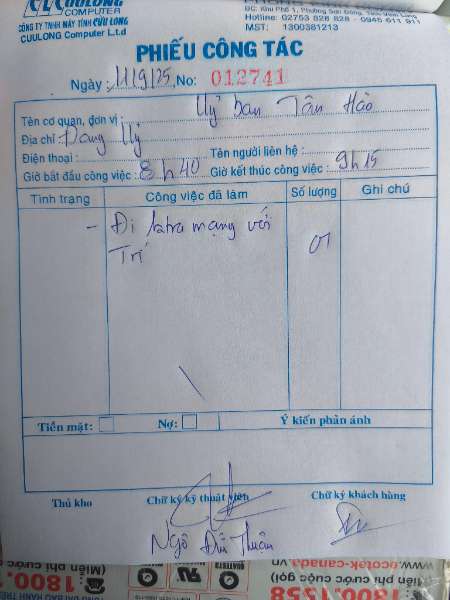 CUULONG
COMPUTER
CÔNG TY TNHH MÁY TÍNH CỬU LONG
CUULONG Computer L.t.d
ĐC: Khu Phố 1, Phường
Hotline: 02753 828 828 - 0945 611 911
MST: 1300381213
PHIẾU CÔNG TÁC
Ngày: 11/9/25 No: 012741
Tên cơ quan, đơn vị: Uỷ ban Tân Hào
Địa chỉ: Đảng Uỷ
Điện thoại: Tên người liên hệ:
Giờ bắt đầu công việc: 8h40 Giờ kết thúc công việc: 9h15
Tình trạng Công việc đã làm Số lượng Ghi chú
- Đi mạng với
Trí 01
Tiền mặt: Nợ: Ý kiến phản ánh
Thủ kho Chữ ký kỹ thuật viên Chữ ký khách hàng
Ngô Đức Thuận
www.ecotek-canada.vn
(Miễn phí cước gọi)
1800.1558